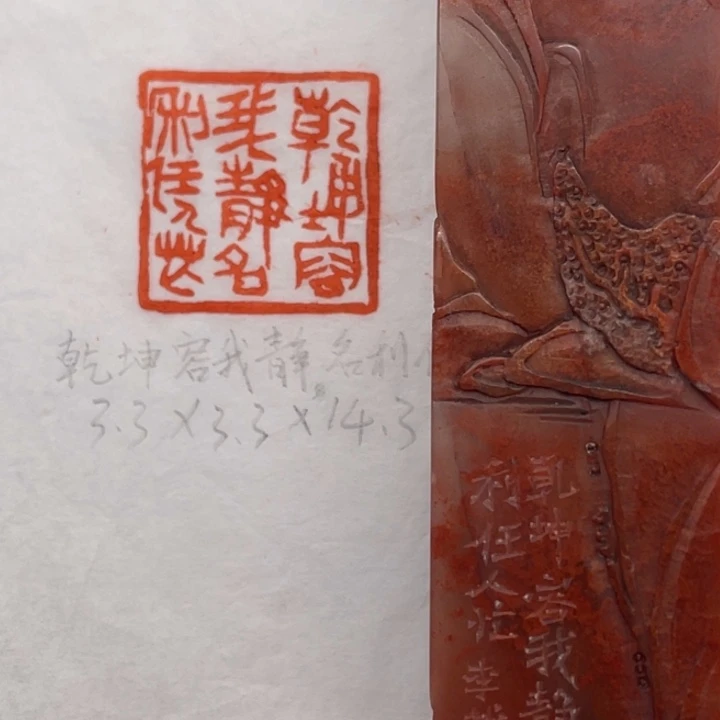 乾坤容
我靜名
利任人忙
乾坤容我静.名利
3.3×3.3×14.3
乾坤容我静
利任人忙 李